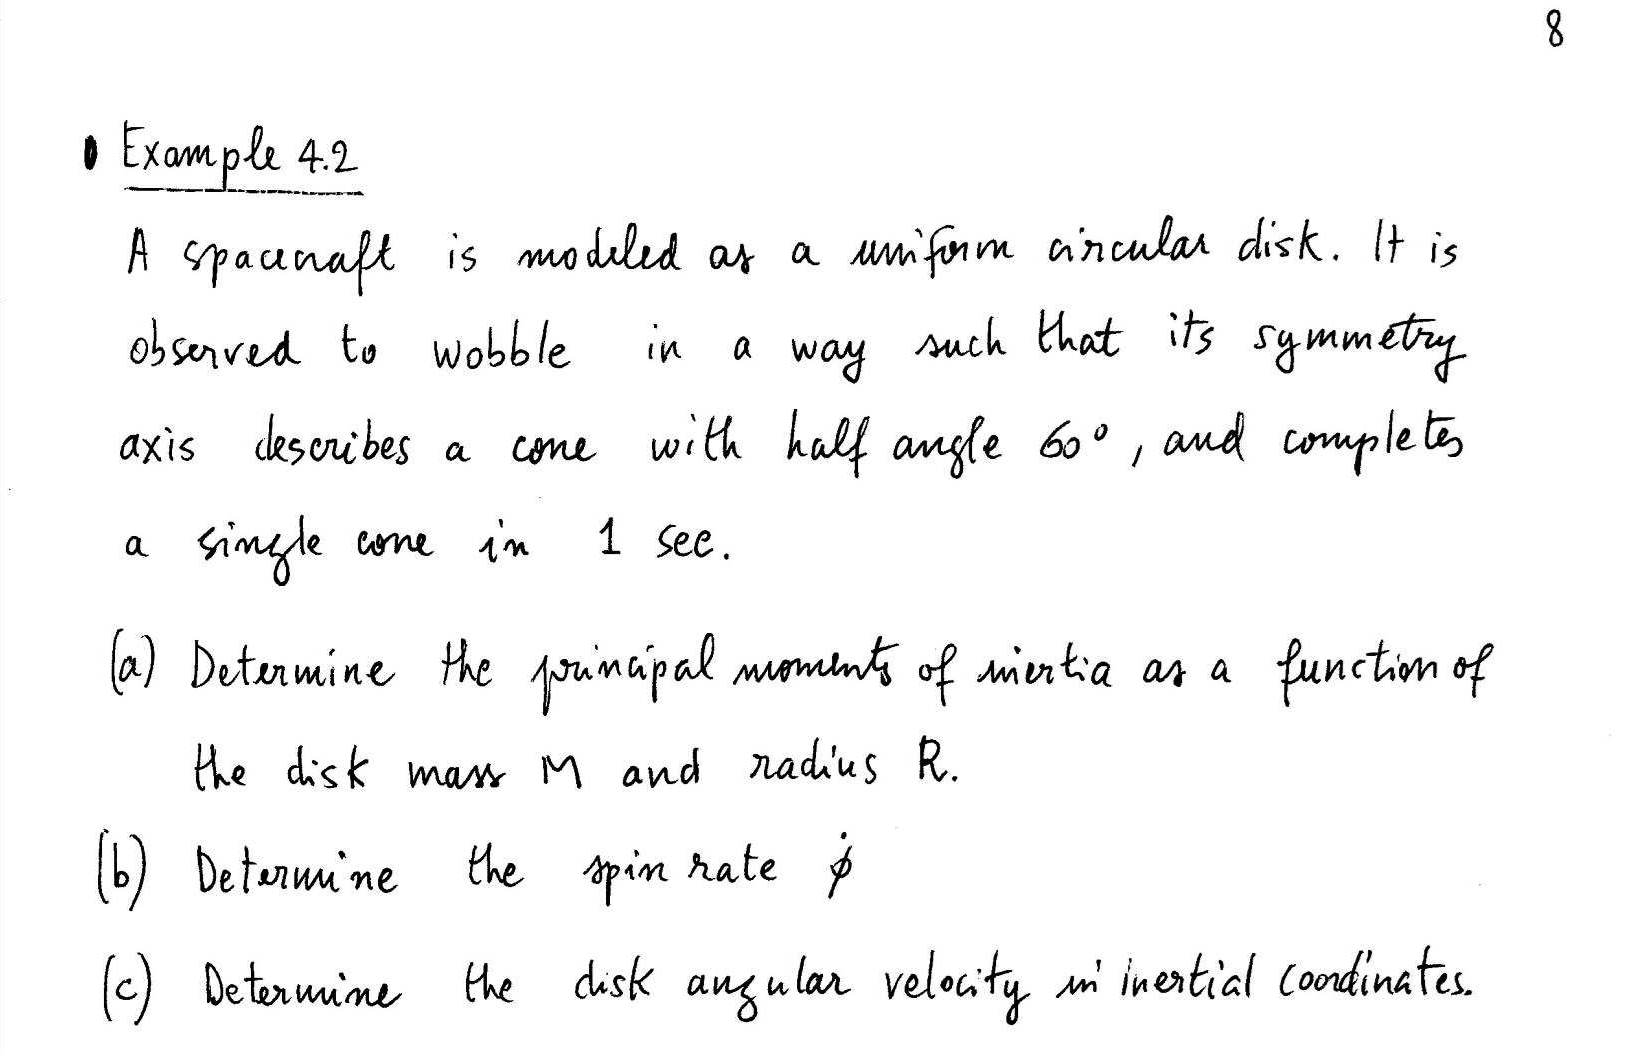 8
Example 4.2
A spacecraft is modeled as a uniform circular disk. It is
observed to wobble in a way such that its symmetry
axis describes a cone with half angle 60°, and completes
a single cone in 1 sec.
(a) Determine the principal moments of inertia as a function of
the disk mass M and radius R.
(b) Determine the spin rate ϕ̇
(c) Determine the disk angular velocity in inertial coordinates.